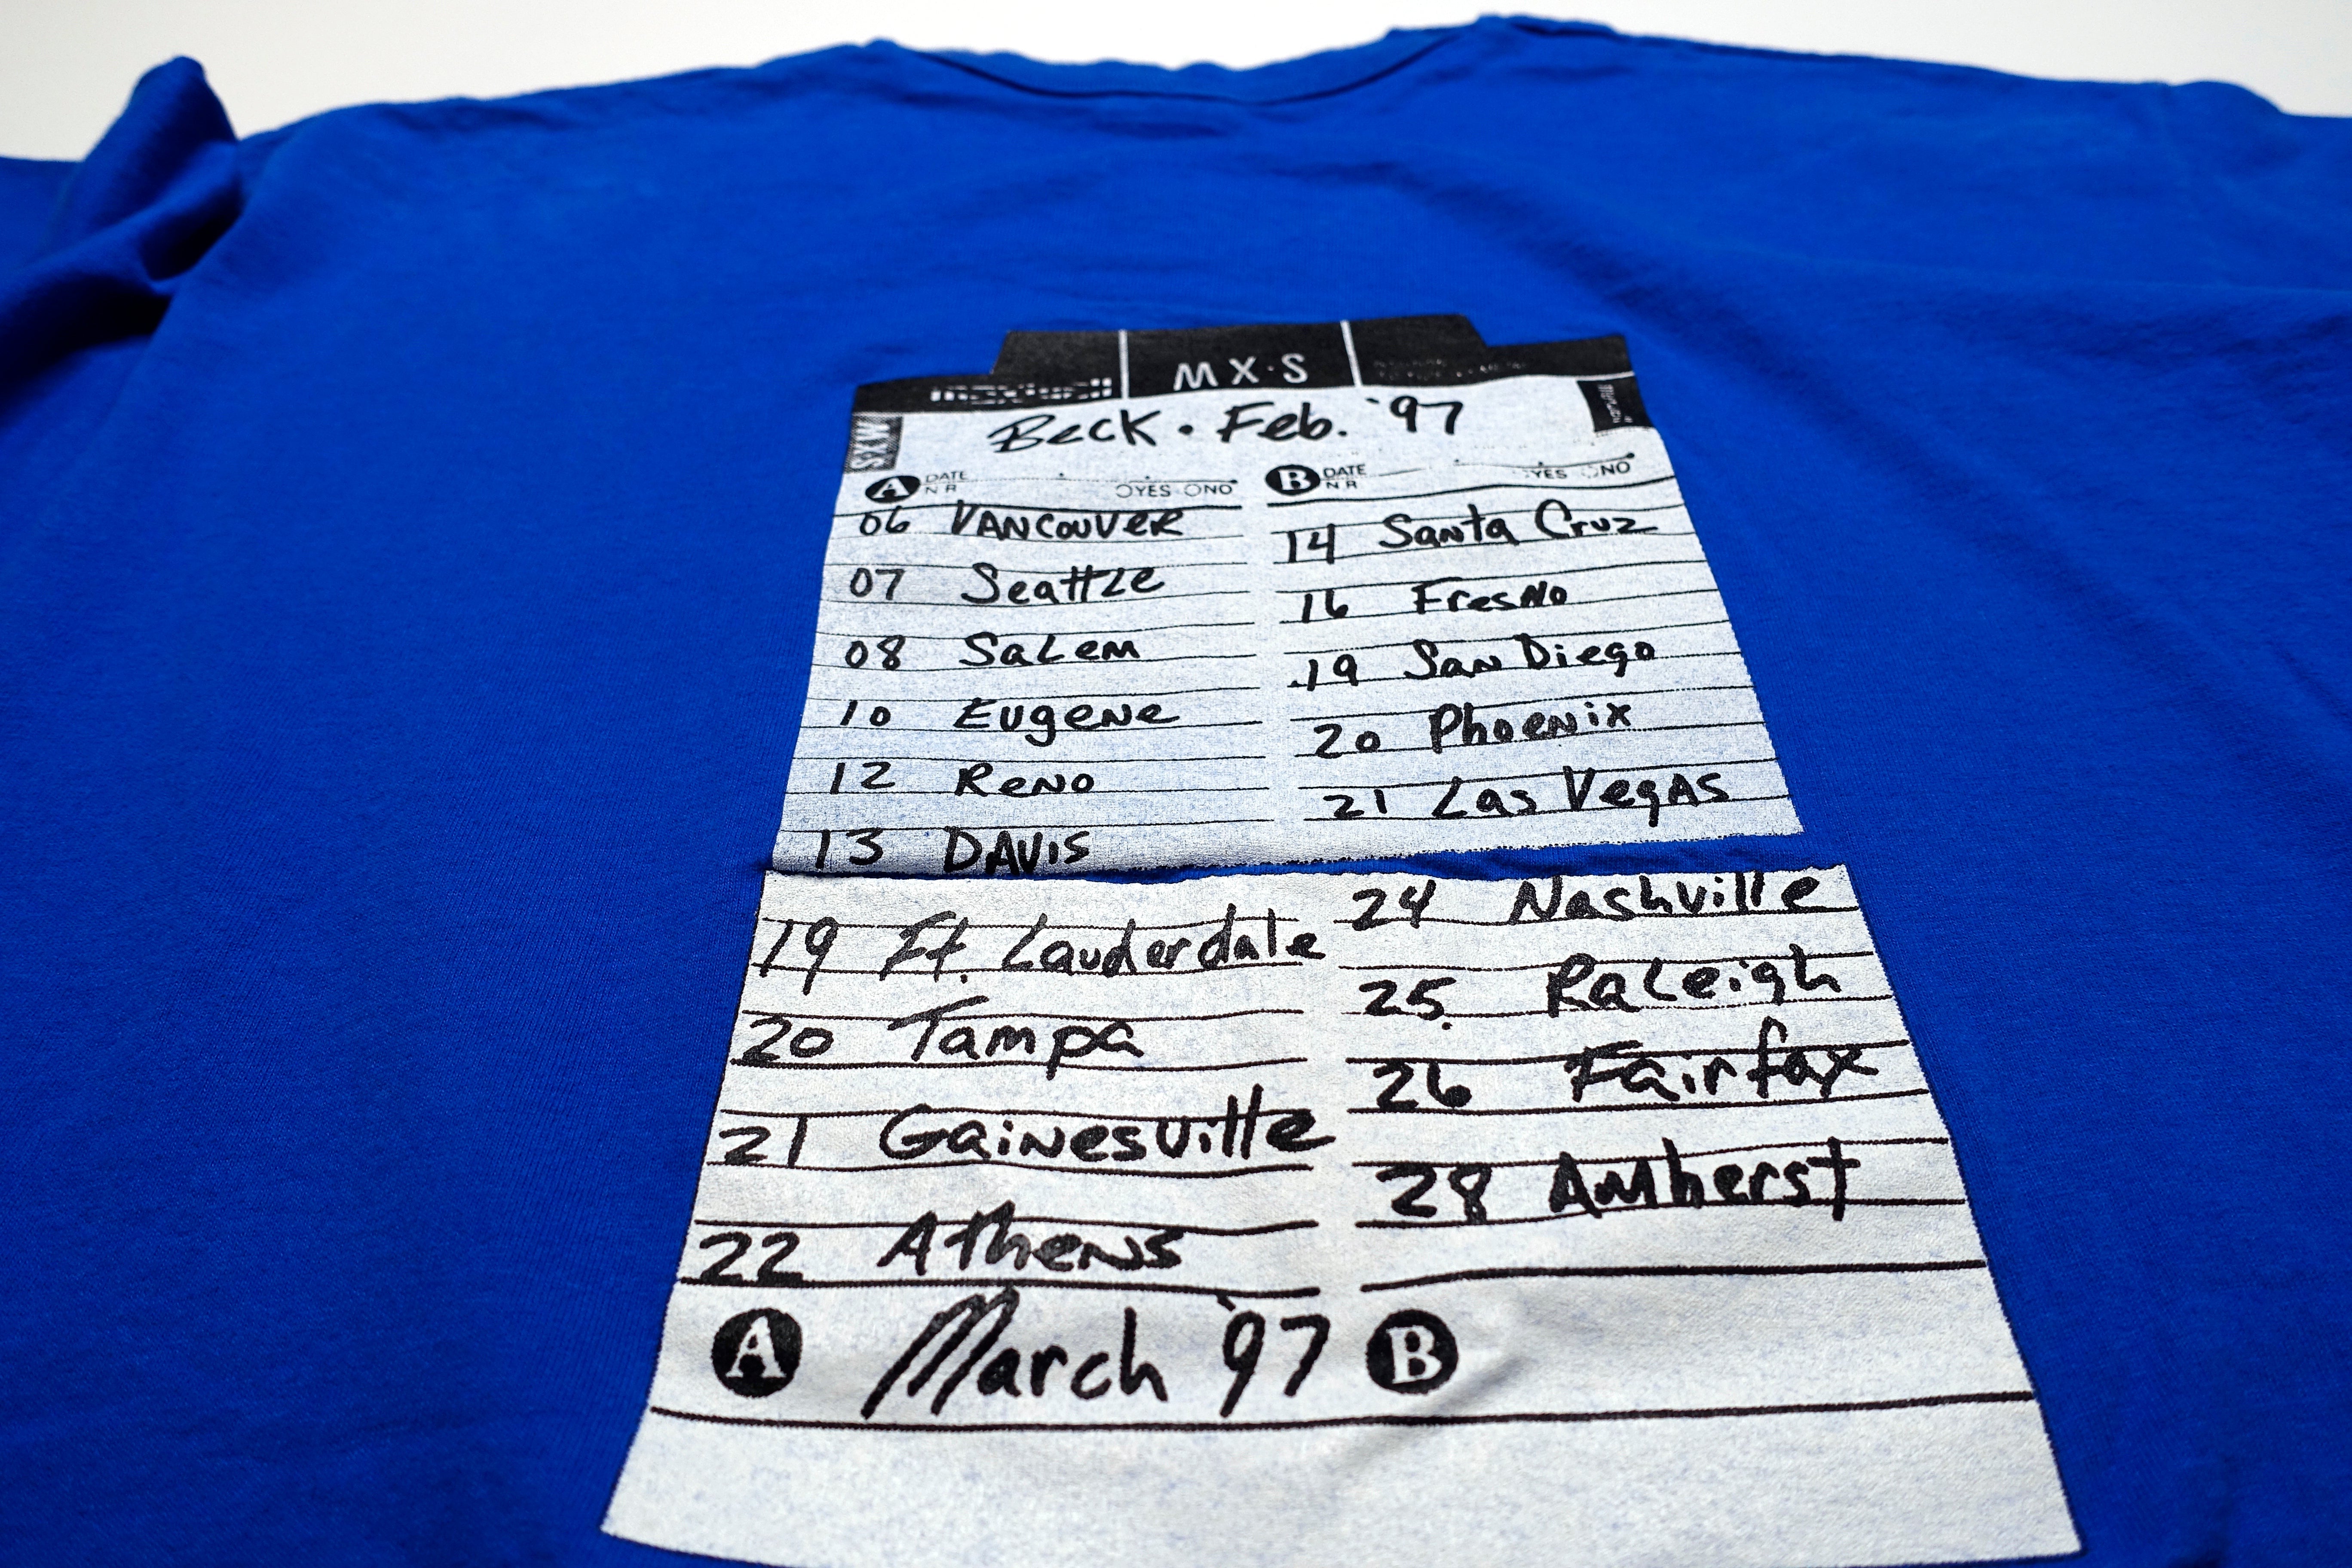 MX·S
MX·S
Beck · Feb. '97
A DATE N R YES NO
B DATE N R YES NO
06 VANCOUVER
07 Seattle
08 Salem
10 Eugene
12 Reno
13 DAVIS
14 Santa Cruz
16 Fresno
19 San Diego
20 Phoenix
21 Las VegAS
19 Ft. Lauderdale
20 Tampa
21 Gainesville
22 Athens
24 Nashville
25 Raleigh
26 Fairfax
28 Amherst
A March '97 B